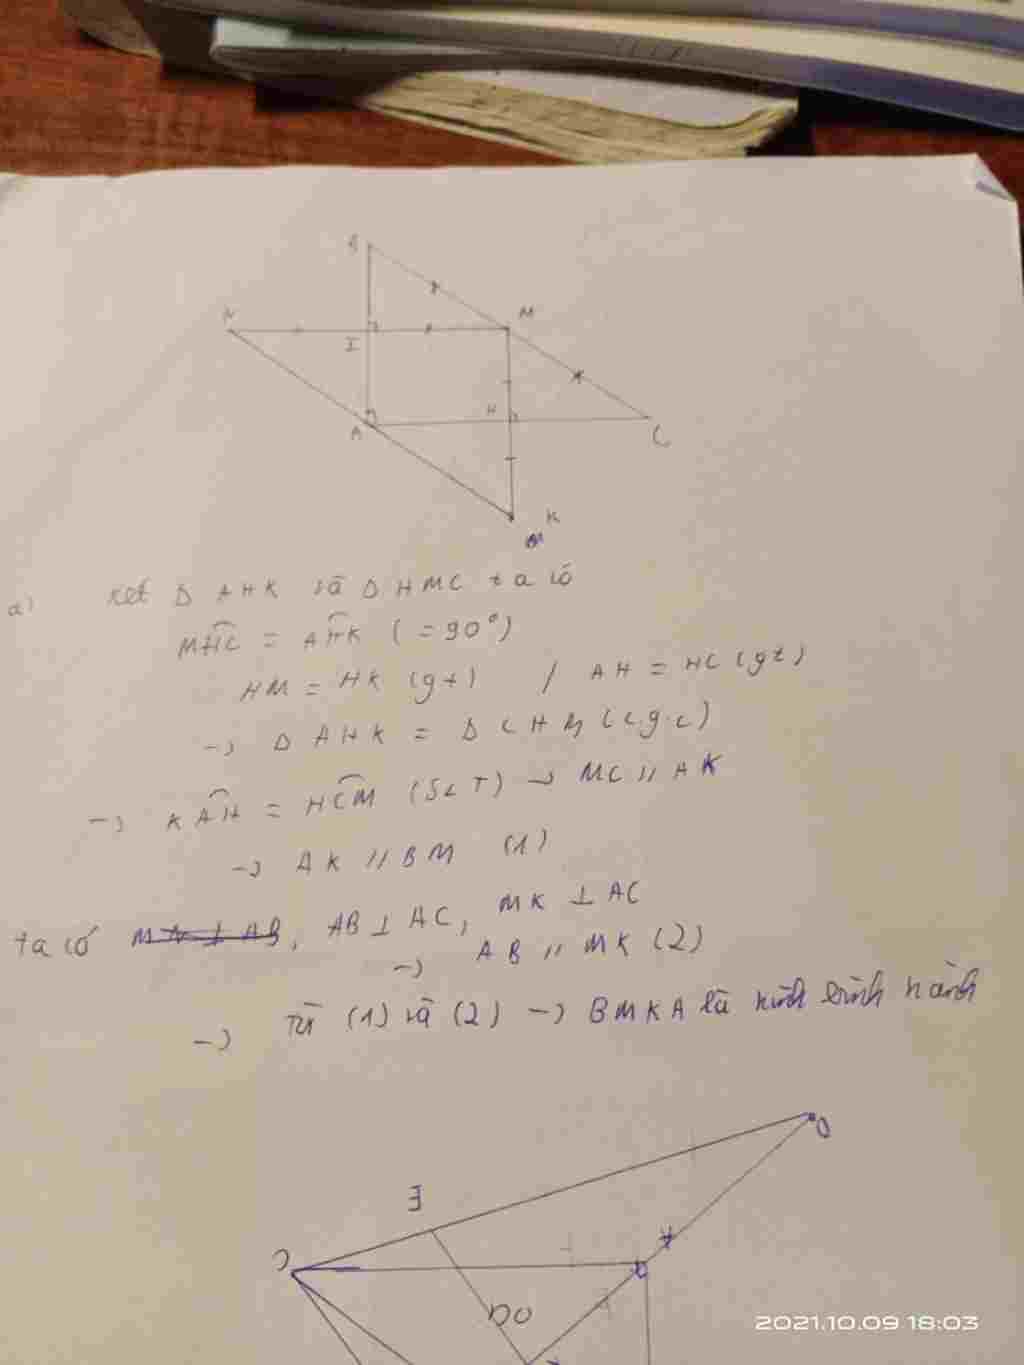 B
N
M
I
A
H
C
K
a) xét Δ AHK và Δ HMC ta có
MHC = AHK (= 90°)
HM = HK (gt) / AH = HC (gt)
→ Δ AHK = Δ CHM (c.g.c)
→ KAH = HCM (SLT) → MC // AK
→ AK // BM (1)
ta có MN ⊥ AB, AB ⊥ AC, MK ⊥ AC
→ AB // MK (2)
→ Từ (1) và (2) → BMKA là hình bình hành
D
E
C
A
2021.10.09 18:03